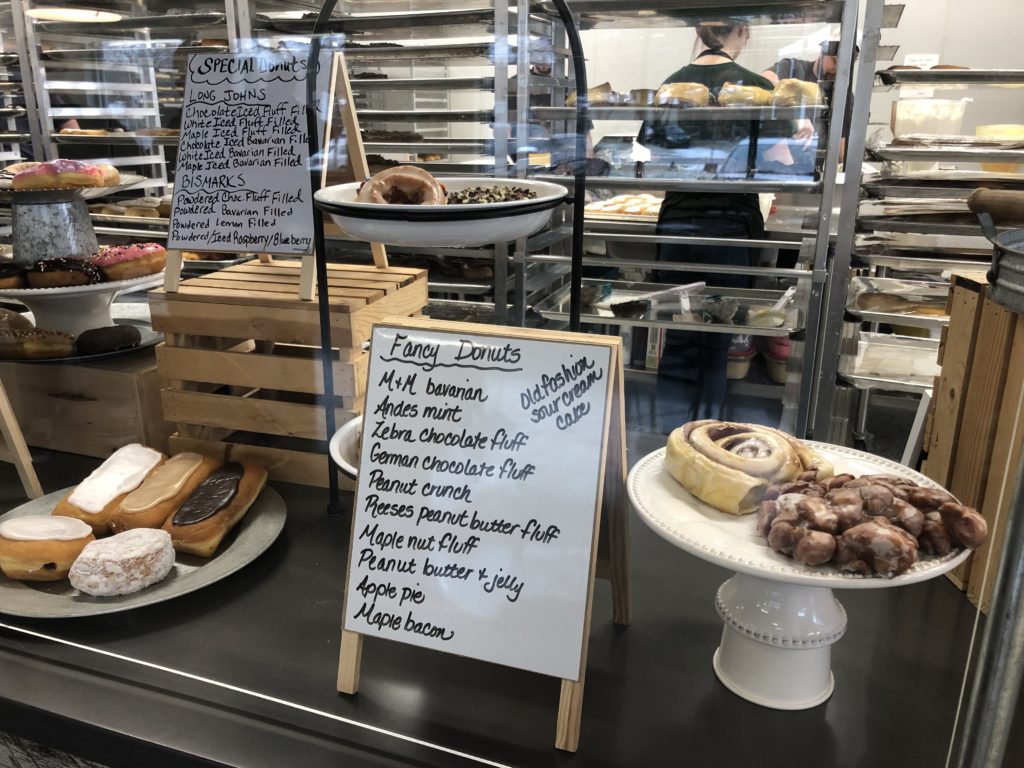 SPECIAL Donuts
LONG JOHNS
Chocolate Iced Fluff Filled
White Iced Fluff Filled
Maple Iced Fluff Filled
Chocolate Iced Bavarian Filled
White Iced Bavarian Filled
Maple Iced Bavarian Filled
BISMARKS
Powdered Choc Fluff Filled
Powdered Bavarian Filled
Powdered Lemon Filled
Powdered/Iced Raspberry/Blueberry
Fancy Donuts
M+M bavarian
Andes mint
Zebra chocolate fluff
German chocolate fluff
Peanut crunch
Reeses peanut butter fluff
Maple nut fluff
Peanut butter + jelly
Apple pie
Maple bacon
Old fashion
sour cream
cake